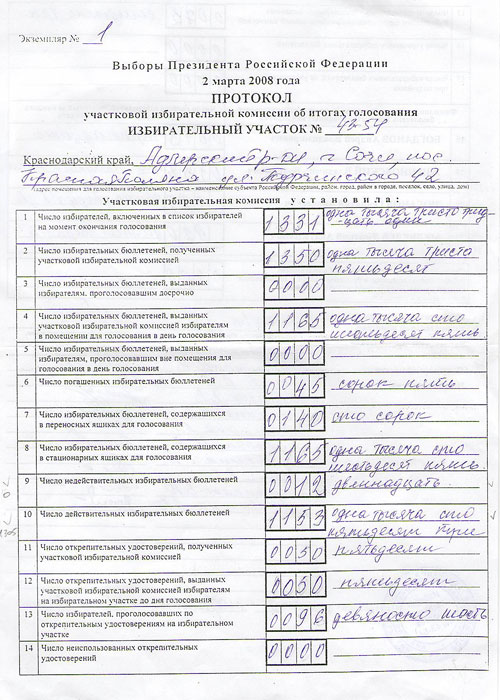 Экземпляр № 1
Выборы Президента Российской Федерации
2 марта 2008 года
ПРОТОКОЛ
участковой избирательной комиссии об итогах голосования
ИЗБИРАТЕЛЬНЫЙ УЧАСТОК № 43-54
Краснодарский край, Адлерский р-он, г. Сочи, пос
Красная Поляна ул. Турчинского 42
(адрес помещения для голосования избирательного участка – наименование субъекта Российской Федерации, район, город, район в городе, поселок, село, улица, дом)
Участковая избирательная комиссия установила:
1 Число избирателей, включенных в список избирателей на момент окончания голосования 1331 одна тысяча триста трид-цать один
2 Число избирательных бюллетеней, полученных участковой избирательной комиссией 1350 одна тысяча триста пятьдесят
3 Число избирательных бюллетеней, выданных избирателям, проголосовавшим досрочно 0000
4 Число избирательных бюллетеней, выданных участковой избирательной комиссией избирателям в помещении для голосования в день голосования 1165 одна тысяча сто шестьдесят пять
5 Число избирательных бюллетеней, выданных избирателям, проголосовавшим вне помещения для голосования в день голосования 0000
6 Число погашенных избирательных бюллетеней 0045 сорок пять
7 Число избирательных бюллетеней, содержащихся в переносных ящиках для голосования 0140 сто сорок
8 Число избирательных бюллетеней, содержащихся в стационарных ящиках для голосования 1165 одна тысяча сто шестьдесят пять
9 Число недействительных избирательных бюллетеней 0012 двенадцать
10 Число действительных избирательных бюллетеней 1153 одна тысяча сто пятьдесят три
11 Число открепительных удостоверений, полученных участковой избирательной комиссией 0050 пятьдесят
12 Число открепительных удостоверений, выданных участковой избирательной комиссией избирателям на избирательном участке до дня голосования 0050 пятьдесят
13 Число избирателей, проголосовавших по открепительным удостоверениям на избирательном участке 0096 девяносто шесть
14 Число неиспользованных открепительных удостоверений 0000